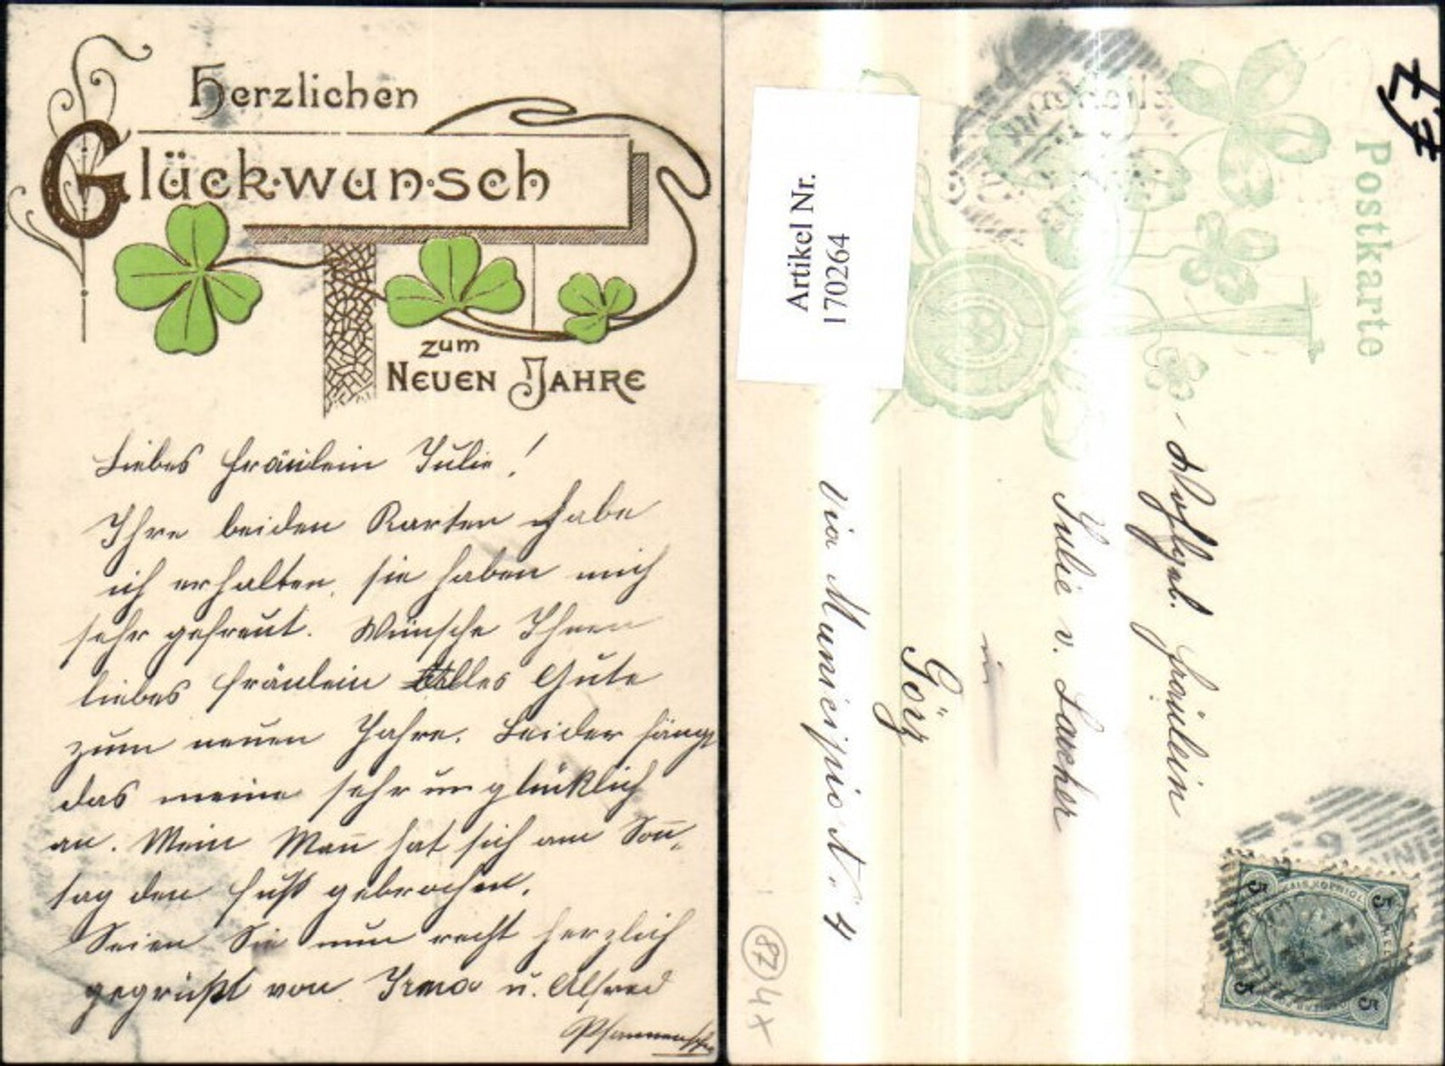 Herzlichen
Glückwunsch
zum
Neuen Jahre
Liebes Fräulein Julie!
Ihre beiden Karten habe
ich erhalten, sie haben mich
sehr gefreut. Wünsche Ihnen
liebes Fräulein Alles Gute
zum neuen Jahre. Leider fängt
das meine sehr unglücklich
an. Mein Mañ hat sich am Soñ„
tag den Fuß gebrochen.
Seien Sie nun recht herzlich
gegrüßt von Irma u. Alfred
Artikel Nr.
170264
Postkarte
Wohlgeb. Fräulein
Julie v. Lacher
in
Görz
Via Municipio N. 4
5 5
5 5
87
4 x